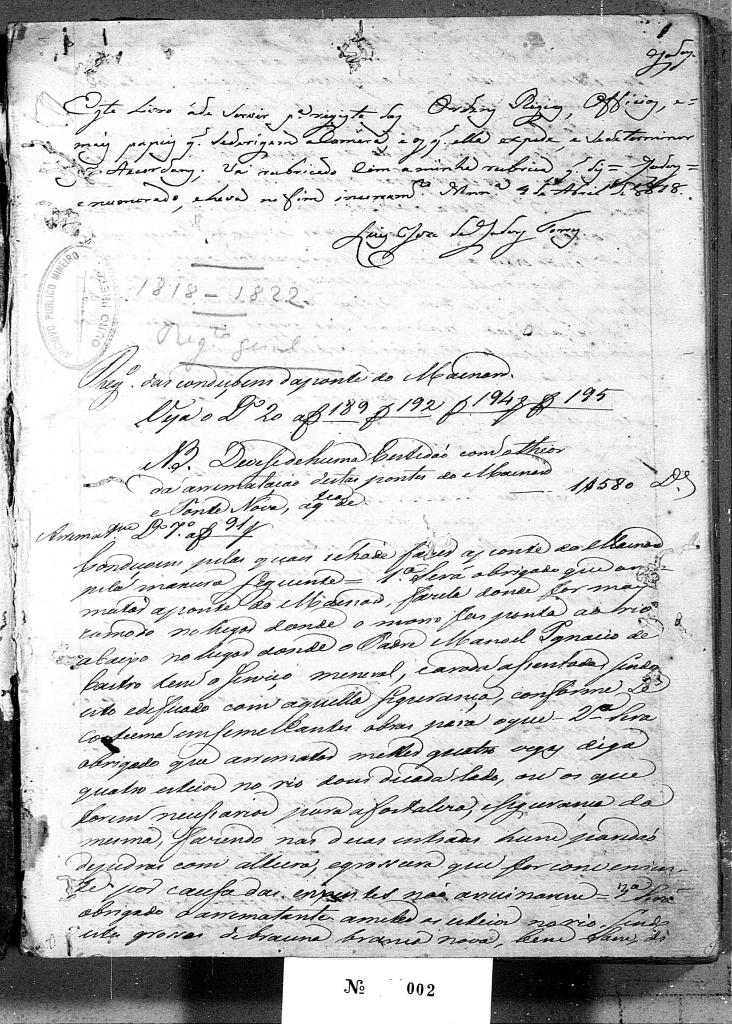 1
Godoy
Este Livro ade Servir pª registo das Ordens Regias, Officios, e
mais papeis q. Sedirigem a Camera, e q. ella expede, e sedeterminar
Acordaons. Vai rubricado Com a minha rubrica q. diz = Godoy =
e numerado, e leva no fim incerram.º Mnnª 4 de Abril de 1818.
Luis Joze de Godoy Torres
ARCHIVO PUBLICO MINEIRO
OURO PRETO
1818 - 1822
Regtº geral
Reg.º das condiçoens da ponte do Mainard.
Veja o Dº 20 a f 189 f 192 f 194 f 195
NB. Devese de huma Certidaõ com o theor
da arrematacaõ destas pontes do Mainard
e Ponte Nova, aq
1$580 Dº
Arrematᵃᵐ Dº 7.º a f 91
Condiçoens pelas quais sehade fazer a ponte do Mainard
pela maneira seguinte = 1.ª Será obrigado que arre=
matar a ponte do Mainard, fazela donde for mais
comodo no lugar donde o morro faz ponta ao rio
abaixo no lugar donde o Padre Manoel Ignacio de
Castro tem o Serviço mineral, e arada asentada sendo
isto edeficado com aquella segurança, conforme se
costuma em semelhantes obras para o que = 2ª Será
obrigado que arrematar metter quatro vigas digo
quatro esteios no rio dous de cada lado, ou os que
forem necessarios para a fortaleza, e segurança da
mesma, fazendo nas duas entradas hum paredaõ
de pedras com altura, e grossura que for convenien=
te por causa das enxentes naõ arruinarem = 3ª Será
obrigado o arrematante a meter os esteios no rio sendo
esta grossas de brauna branca nova, bem
Nº 002